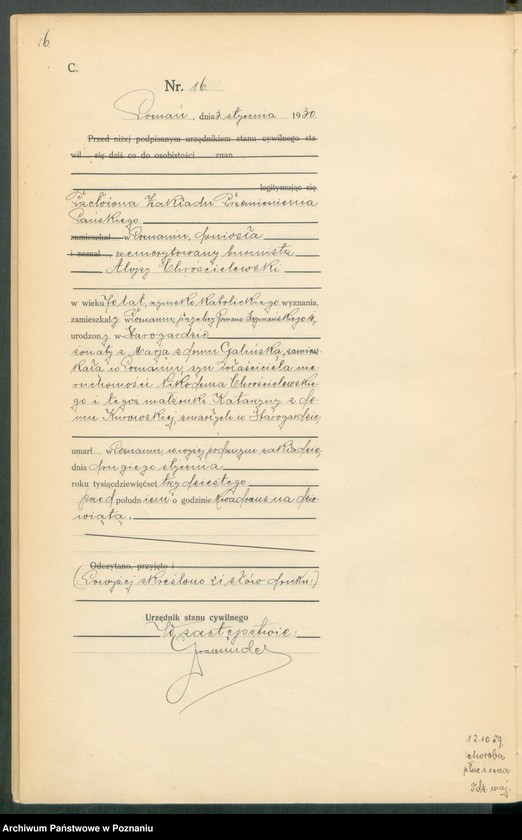 16.
C.
Nr. 16
Poznań, dnia 3 stycznia 1930.
Przed niżej podpisanym urzędnikiem stanu cywilnego sta
wił się dziś co do osobistości znan
legitymując się
Przełożona Zakładu Przemienienia
Pańskiego
zamieszkał w Poznaniu, doniosła
i zeznał, że emerytowany burmistrz
Alojzy Chrościelewski
w wieku 70 lat, rzymsko katolickiego wyznania,
zamieszkały w Poznaniu, przy ulicy Romana Szymańskiego
urodzony w Starogardzie
żonaty z Marją z domu Galińską, zamiesz-
kałą w Poznaniu, syn właściciela nie-
ruchomości Nikodema Chrościelewskie-
go i tegoż małżonki Katarzyny z do-
mu Kurowskiej, zmarłych w Starogardzie,
umarł w Poznaniu, w wyżej podanym zakładzie,
dnia drugiego stycznia
roku tysiącdziewięćset trzydziestego
przed południem o godzinie kwadrans na dzie-
wiątą.
Odczytano, przyjęto i
(Powyżej skreślono 21 słów druku.)
Urzędnik stanu cywilnego
W zastępstwie:
12.10.59.
choroba
płuc i serca
Archiwum Państwowe w Poznaniu